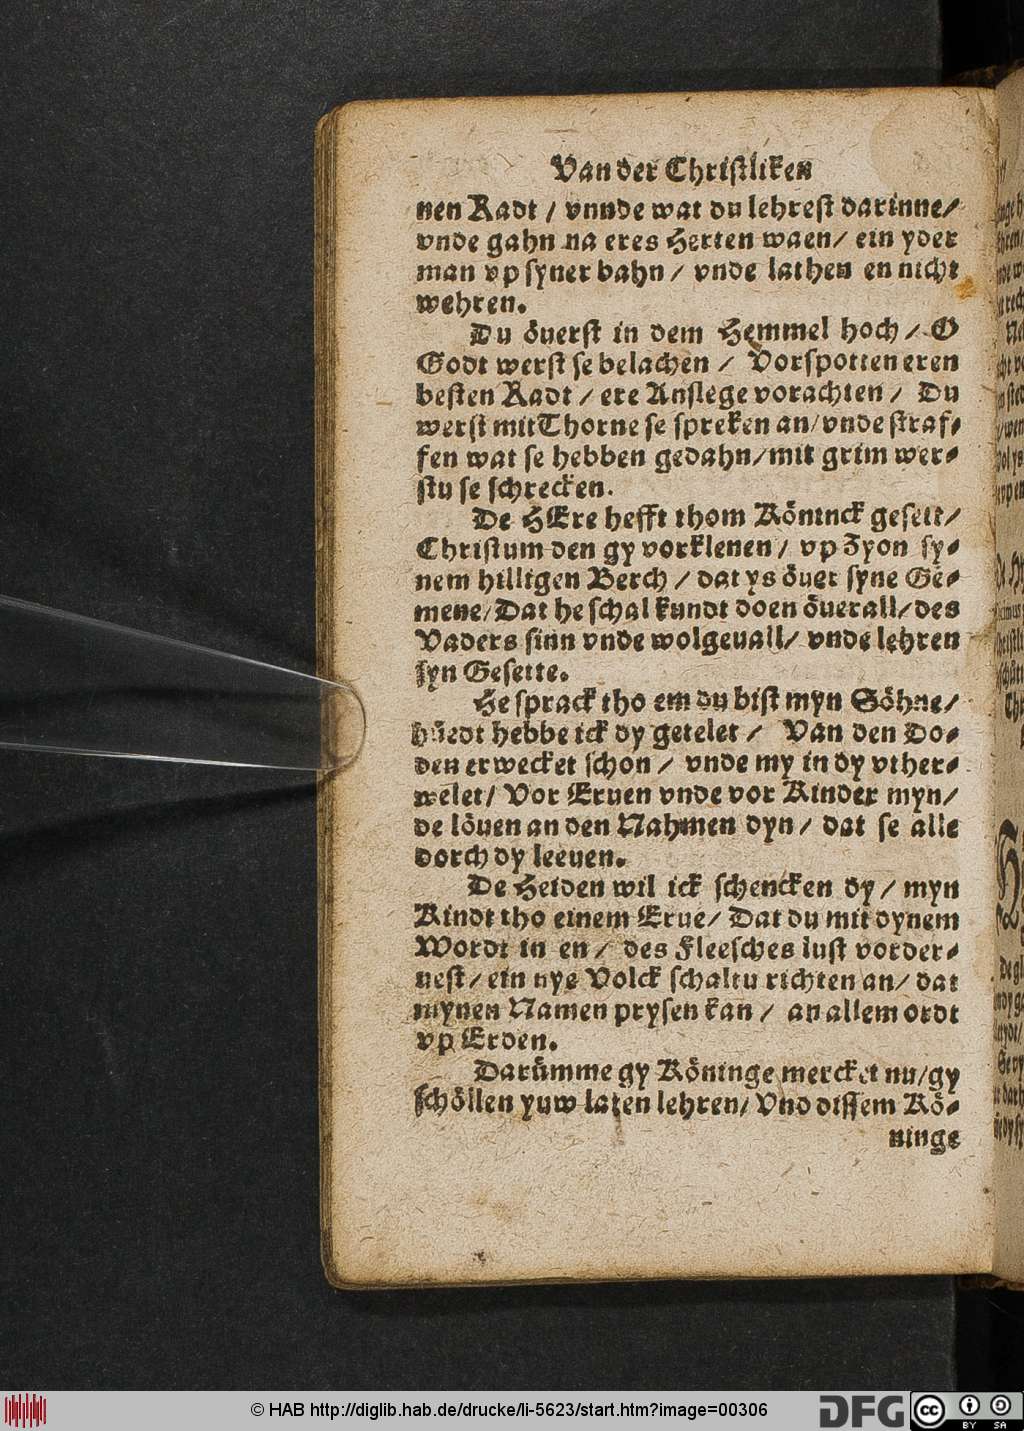 Van der Christliken
nen Radt / vnnde wat du lehrest darinne /
vnde gahn na eres Herten waen / ein yder
man vp syner bahn / vnde lathen en nicht
wehren.
Du öuerst in dem Hemmel hoch / O
Godt werst se belachen / Vorspotten eren
besten Radt / ere Anslege vorachten / Du
werst mit Thorne se spreken an / vnde straf⸗
fen wat se hebben gedahn / mit grim wer⸗
stu se schrecken.
De HEre hefft thom Köninck gesett /
Christum den gy vorklenen / vp Zyon sy⸗
nem hilligen Berch / dat ys öuer syne Ge⸗
mene / Dat he schal kundt doen öuerall / des
Vaders sinn vnde wolgeuall / vnde lehren
syn Gesette.
He sprack tho em du bist myn Söhne /
hüedt hebbe ick dy getelet / Van den Do⸗
den erwecket schon / vnde my in dy vther⸗
welet / Vor Eruen vnde vor Kinder myn /
de löuen an den Nahmen dyn / dat se alle
dorch dy leeuen.
De Heiden wil ick schencken dy / myn
Kindt tho einem Erue / Dat du mit dynem
Wordt in en / des Fleesches lust vorder⸗
uest / ein nye Volck schaltu richten an / dat
mynen Namen prysen kan / an allem ordt
vp Erden.
Darümme gy Köninge mercket nu / gy
schöllen yuw laten lehren / Vnd dissem Kö⸗
ninge
© HAB http://diglib.hab.de/drucke/li-5623/start.htm?image=00306
DFG
cc
BY SA